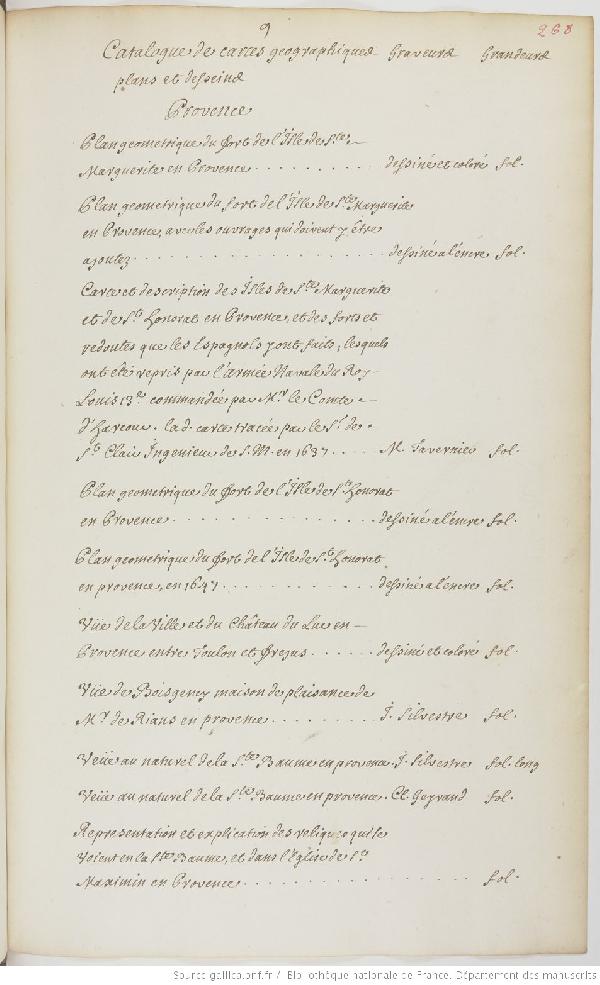 9
268
Catalogue de cartes geographiques Graveurs Grandeurs
plans et desseins
Provence
Plan geometrique du fort de l'Isle de Ste
Marguerite en Provence . . . . . . . . . . dessiné et coloré fol.
Plan geometrique du fort de l'Isle de Ste Marguerite
en Provence, avec les ouvrages qui doivent y être
ajoutez . . . . . . . . . . dessiné a l'encre fol.
Carte et description des Isles de Ste Marguerite
et de St Honorat en Provence, et des forts et
redoutes que les Espagnols y ont faits, lesquels
ont été repris par l'armée Navale du Roy
Louis 13e commandée par Mr le Comte
d'Harcour. la d. carte tracée par le Sr de
St Clair Ingenieur de S. M. en 1637 . . . . M. Tavernier fol.
Plan geometrique du fort de l'Isle de St Honorat
en Provence . . . . . . . . . . dessiné a l'encre fol.
Plan geometrique du fort de l'Isle de St Honorat
en provence, en 1647 . . . . . . . . . . dessiné a l'encre fol.
Vüe de la Ville et du Château du Luc en
Provence entre Toulon et Frejus . . . . . . dessiné et coloré fol.
Vüe de Boisgency maison de plaisance de
Mr de Rians en provence . . . . . . . . I. Silvestre fol.
Veüe au naturel de la Ste Baume en provence I. Silvestre fol. long
Veüe au naturel de la Ste Baume en provence. Cl. fol.
Representation et explication des reliques qui se
voient en la Ste Baume, et dans l'Eglise de St
Maximin en Provence . . . . . . . . . . fol.
Source gallica.bnf.fr / Bibliothèque nationale de France. Département des manuscrits